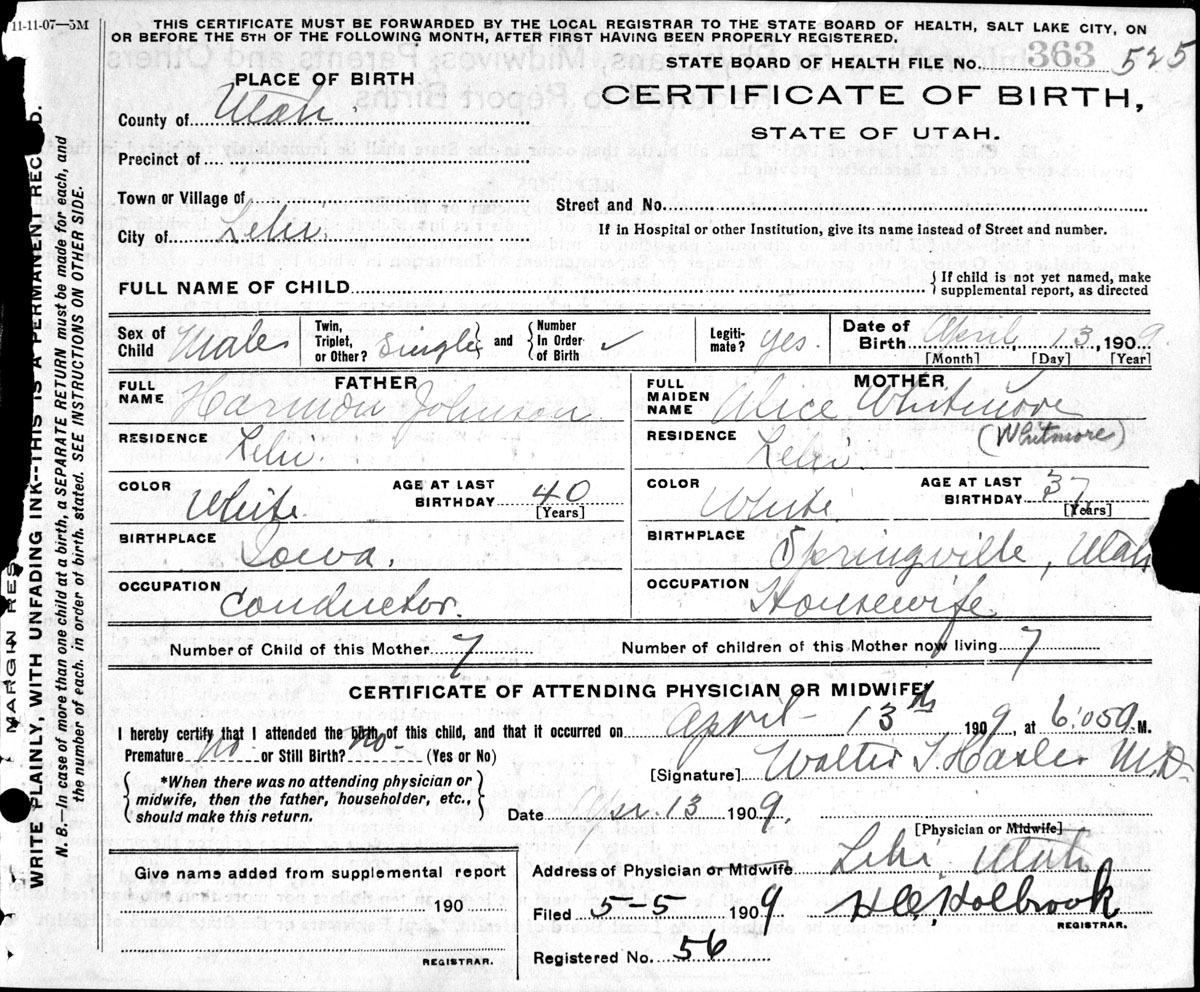 11-11-07—5M
THIS CERTIFICATE MUST BE FORWARDED BY THE LOCAL REGISTRAR TO THE STATE BOARD OF HEALTH, SALT LAKE CITY, ON
OR BEFORE THE 5TH OF THE FOLLOWING MONTH, AFTER FIRST HAVING BEEN PROPERLY REGISTERED.
STATE BOARD OF HEALTH FILE No. 363 525
PLACE OF BIRTH
CERTIFICATE OF BIRTH,
STATE OF UTAH.
County of Utah
Precinct of
Town or Village of
Street and No.
City of Lehi
If in Hospital or other Institution, give its name instead of Street and number.
FULL NAME OF CHILD
If child is not yet named, make
supplemental report, as directed
Sex of Child Male
Twin, Triplet, or Other? Single and Number In Order of Birth ✓
Legiti-mate? yes.
Date of Birth April, 13, 1909
[Month] [Day] [Year]
FATHER
FULL NAME Harmon Johnson
RESIDENCE Lehi
COLOR White
AGE AT LAST BIRTHDAY 40
[Years]
BIRTHPLACE Iowa.
OCCUPATION Conductor.
MOTHER
FULL MAIDEN NAME Alice Whitmore
(Whitmore)
RESIDENCE Lehi
COLOR White
AGE AT LAST BIRTHDAY 37
[Years]
BIRTHPLACE Springville, Utah
OCCUPATION Housewife
Number of Child of this Mother 7
Number of children of this Mother now living 7
CERTIFICATE OF ATTENDING PHYSICIAN OR MIDWIFE
I hereby certify that I attended the birth of this child, and that it occurred on April 13th 1909, at 6:05 a. M.
Premature no or Still Birth? no (Yes or No)
*When there was no attending physician or
midwife, then the father, householder, etc.,
should make this return.
[Signature] Walter T. Hasler M.D.
Date Apr. 13 1909.
[Physician or Midwife]
Address of Physician or Midwife Lehi Utah
Give name added from supplemental report
190
REGISTRAR.
Filed 5-5 1909
H.C. Holbrook
REGISTRAR.
Registered No. 56
MARGIN RES
WRITE PLAINLY, WITH UNFADING INK--THIS IS A PERMANENT REC D.
N. B.—In case of more than one child at a birth, a SEPARATE RETURN must be made for each, and
the number of each, in order of birth, stated. SEE INSTRUCTIONS ON OTHER SIDE.